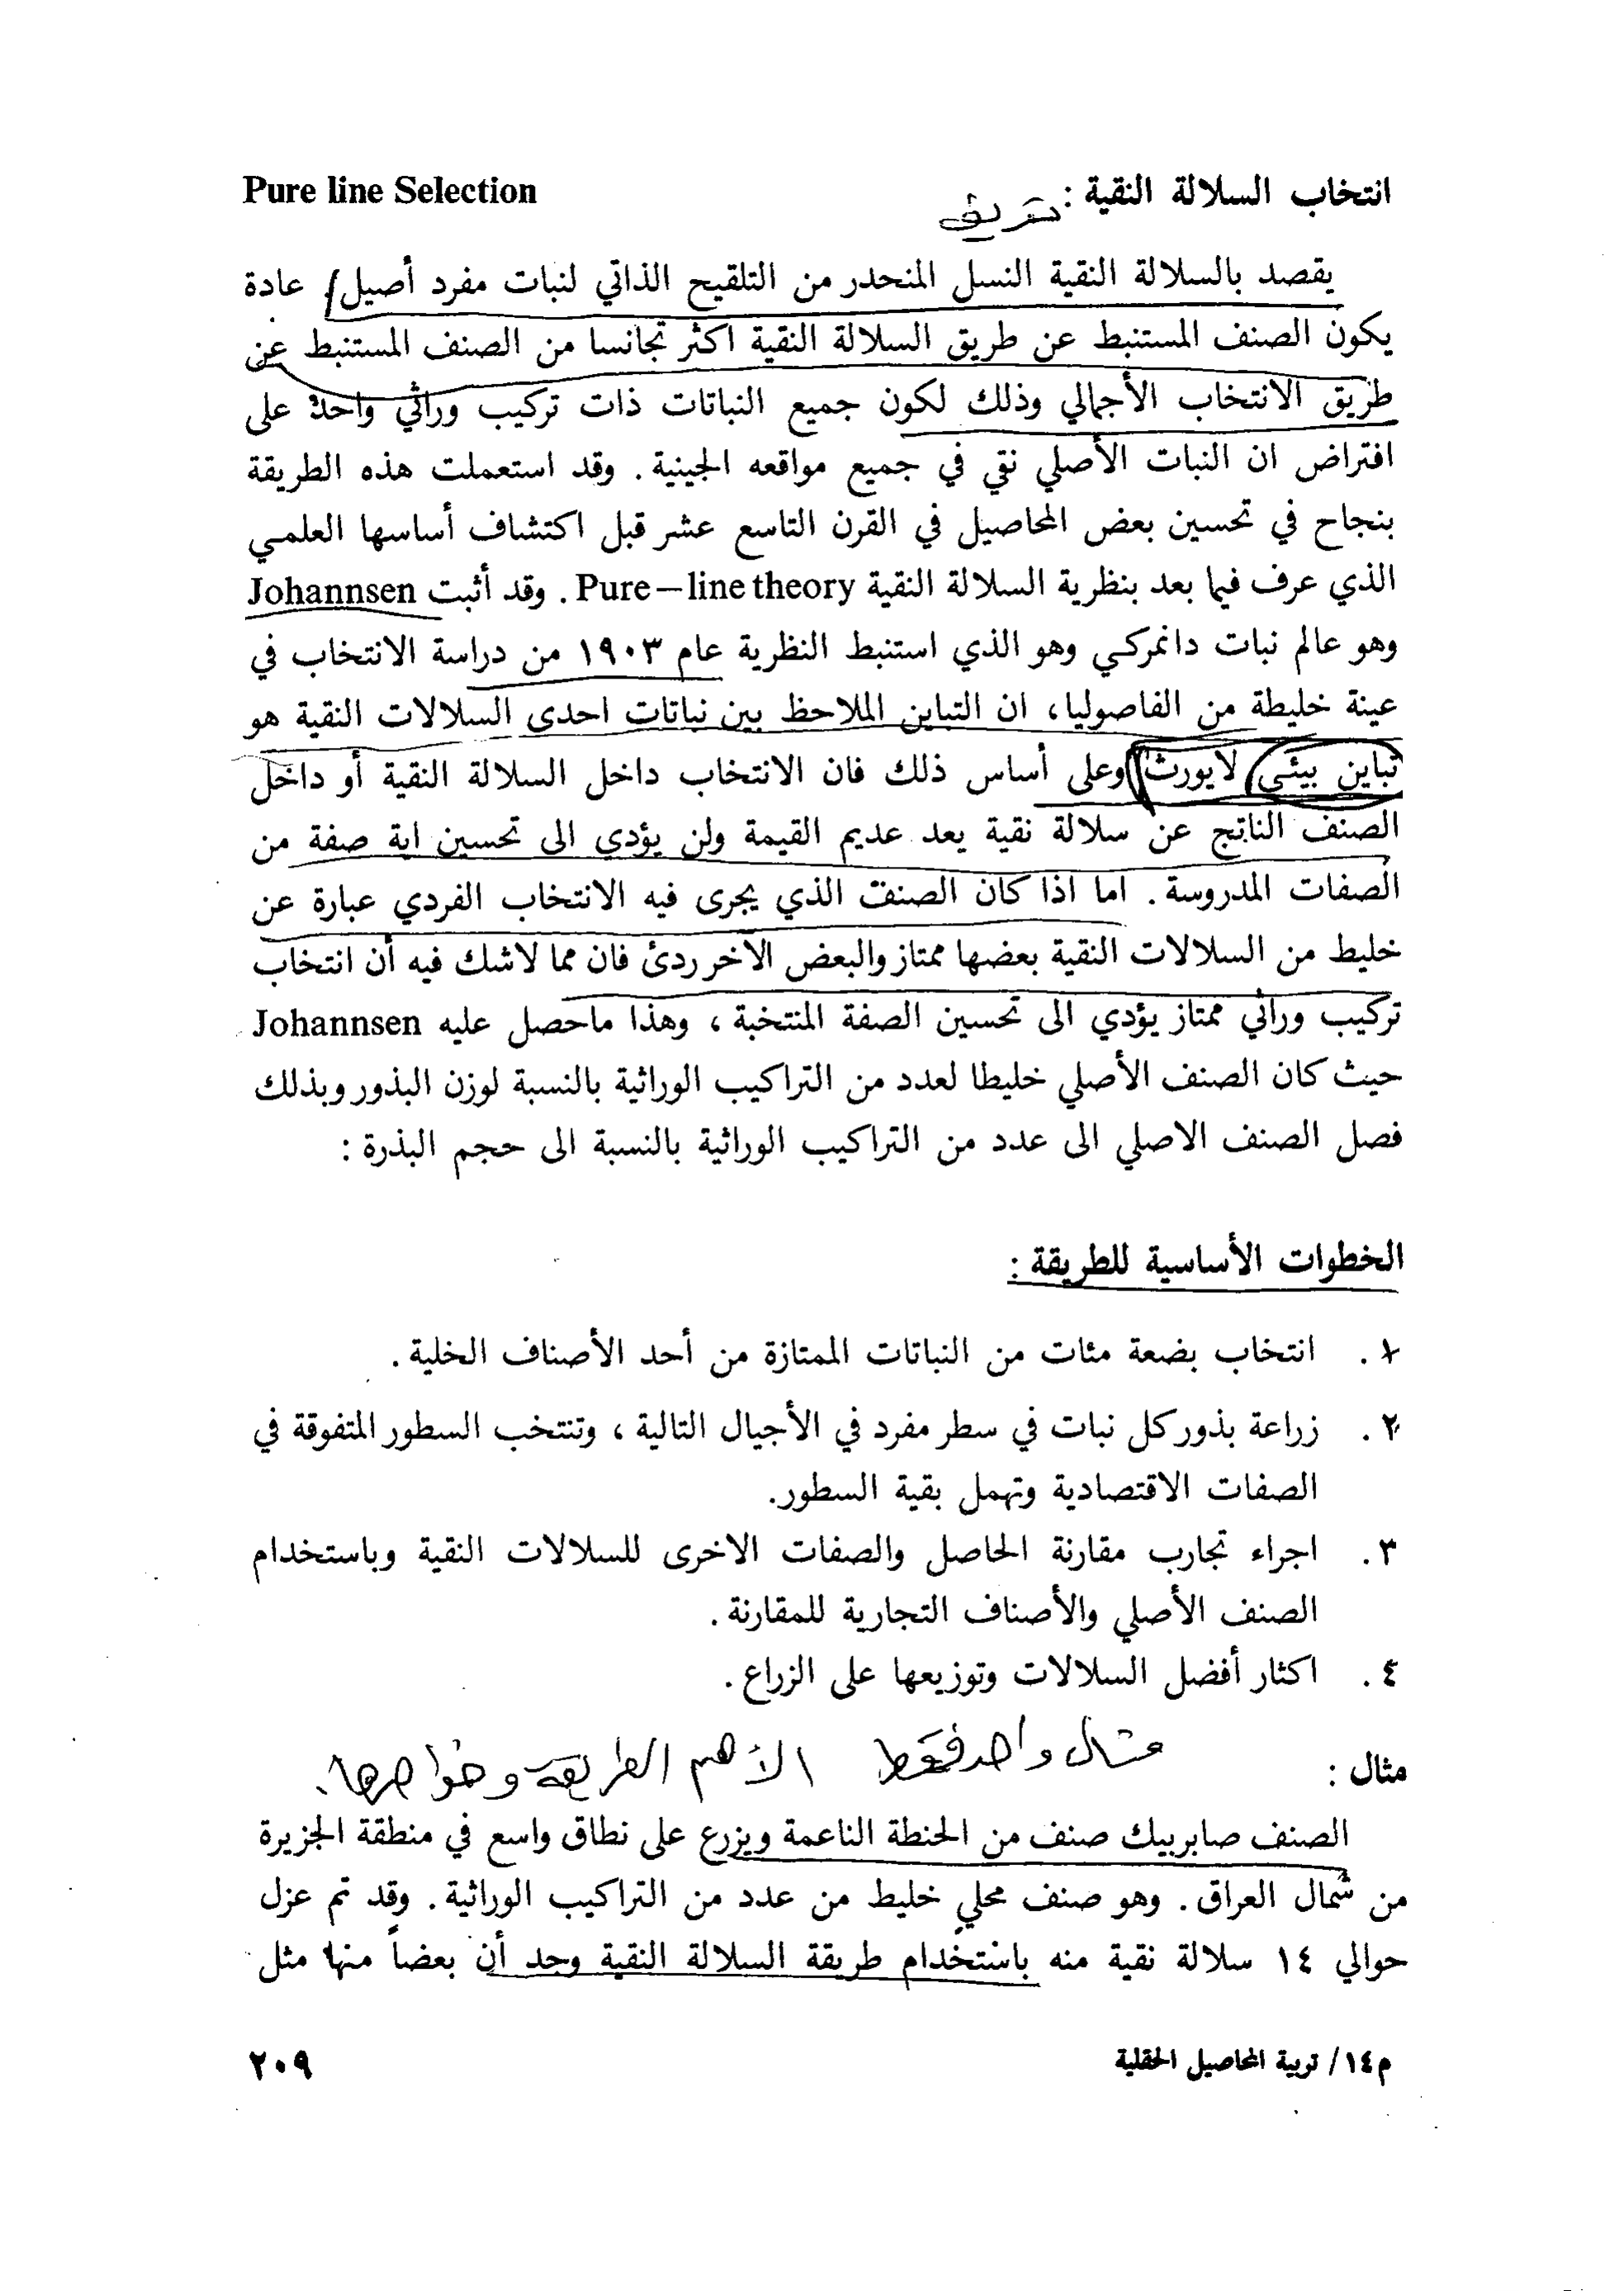 انتخاب السلالة النقية : تعريف Pure line Selection
يقصد بالسلالة النقية النسل المنحدر من التلقيح الذاتي لنبات مفرد أصيل / عادة
يكون الصنف المستنبط عن طريق السلالة النقية اكثر تجانسا من الصنف المستنبط عن
طريق الانتخاب الأجمالي وذلك لكون جميع النباتات ذات تركيب وراثي واحد على
افتراض ان النبات الأصلي نقي في جميع مواقعه الجينية . وقد استعملت هذه الطريقة
بنجاح في تحسين بعض المحاصيل في القرن التاسع عشر قبل اكتشاف أساسها العلمي
الذي عرف فيما بعد بنظرية السلالة النقية Pure – line theory . وقد أثبت Johannsen
وهو عالم نبات دانمركي وهو الذي استنبط النظرية عام ١٩٠٣ من دراسة الانتخاب في
عينة خليطة من الفاصوليا، ان التباين الملاحظ بين نباتات احدى السلالات النقية هو
تباين بيئي لايورث وعلى أساس ذلك فان الانتخاب داخل السلالة النقية أو داخل
الصنف الناتج عن سلالة نقية يعد عديم القيمة ولن يؤدي الى تحسين اية صفة من
الصفات المدروسة . اما اذا كان الصنف الذي يجرى فيه الانتخاب الفردي عبارة عن
خليط من السلالات النقية بعضها ممتاز والبعض الاخر ردئ فان مما لاشك فيه أن انتخاب
تركيب وراثي ممتاز يؤدي الى تحسين الصفة المنتخبة ، وهذا ماحصل عليه Johannsen
حيث كان الصنف الأصلي خليطا لعدد من التراكيب الوراثية بالنسبة لوزن البذور وبذلك
فصل الصنف الاصلي الى عدد من التراكيب الوراثية بالنسبة الى حجم البذرة :
الخطوات الأساسية للطريقة :
١ . انتخاب بضعة مئات من النباتات الممتازة من أحد الأصناف الخلية .
٢ . زراعة بذور كل نبات في سطر مفرد في الأجيال التالية ، وتنتخب السطور المتفوقة في
الصفات الاقتصادية وتهمل بقية السطور.
٣ . اجراء تجارب مقارنة الحاصل والصفات الاخرى للسلالات النقية وباستخدام
الصنف الأصلي والأصناف التجارية للمقارنة .
٤ . اكثار أفضل السلالات وتوزيعها على الزراع .
مثال : مثال واحد فقط الأهم الطريقة وخواصها .
الصنف صابربيك صنف من الحنطة الناعمة ويزرع على نطاق واسع في منطقة الجزيرة
من شمال العراق . وهو صنف محلي خليط من عدد من التراكيب الوراثية . وقد تم عزل
حوالي ١٤ سلالة نقية منه باستخدام طريقة السلالة النقية وجد أن بعضاً منها مثل
م١٤/ تربية المحاصيل الحقلية ٢٠٩